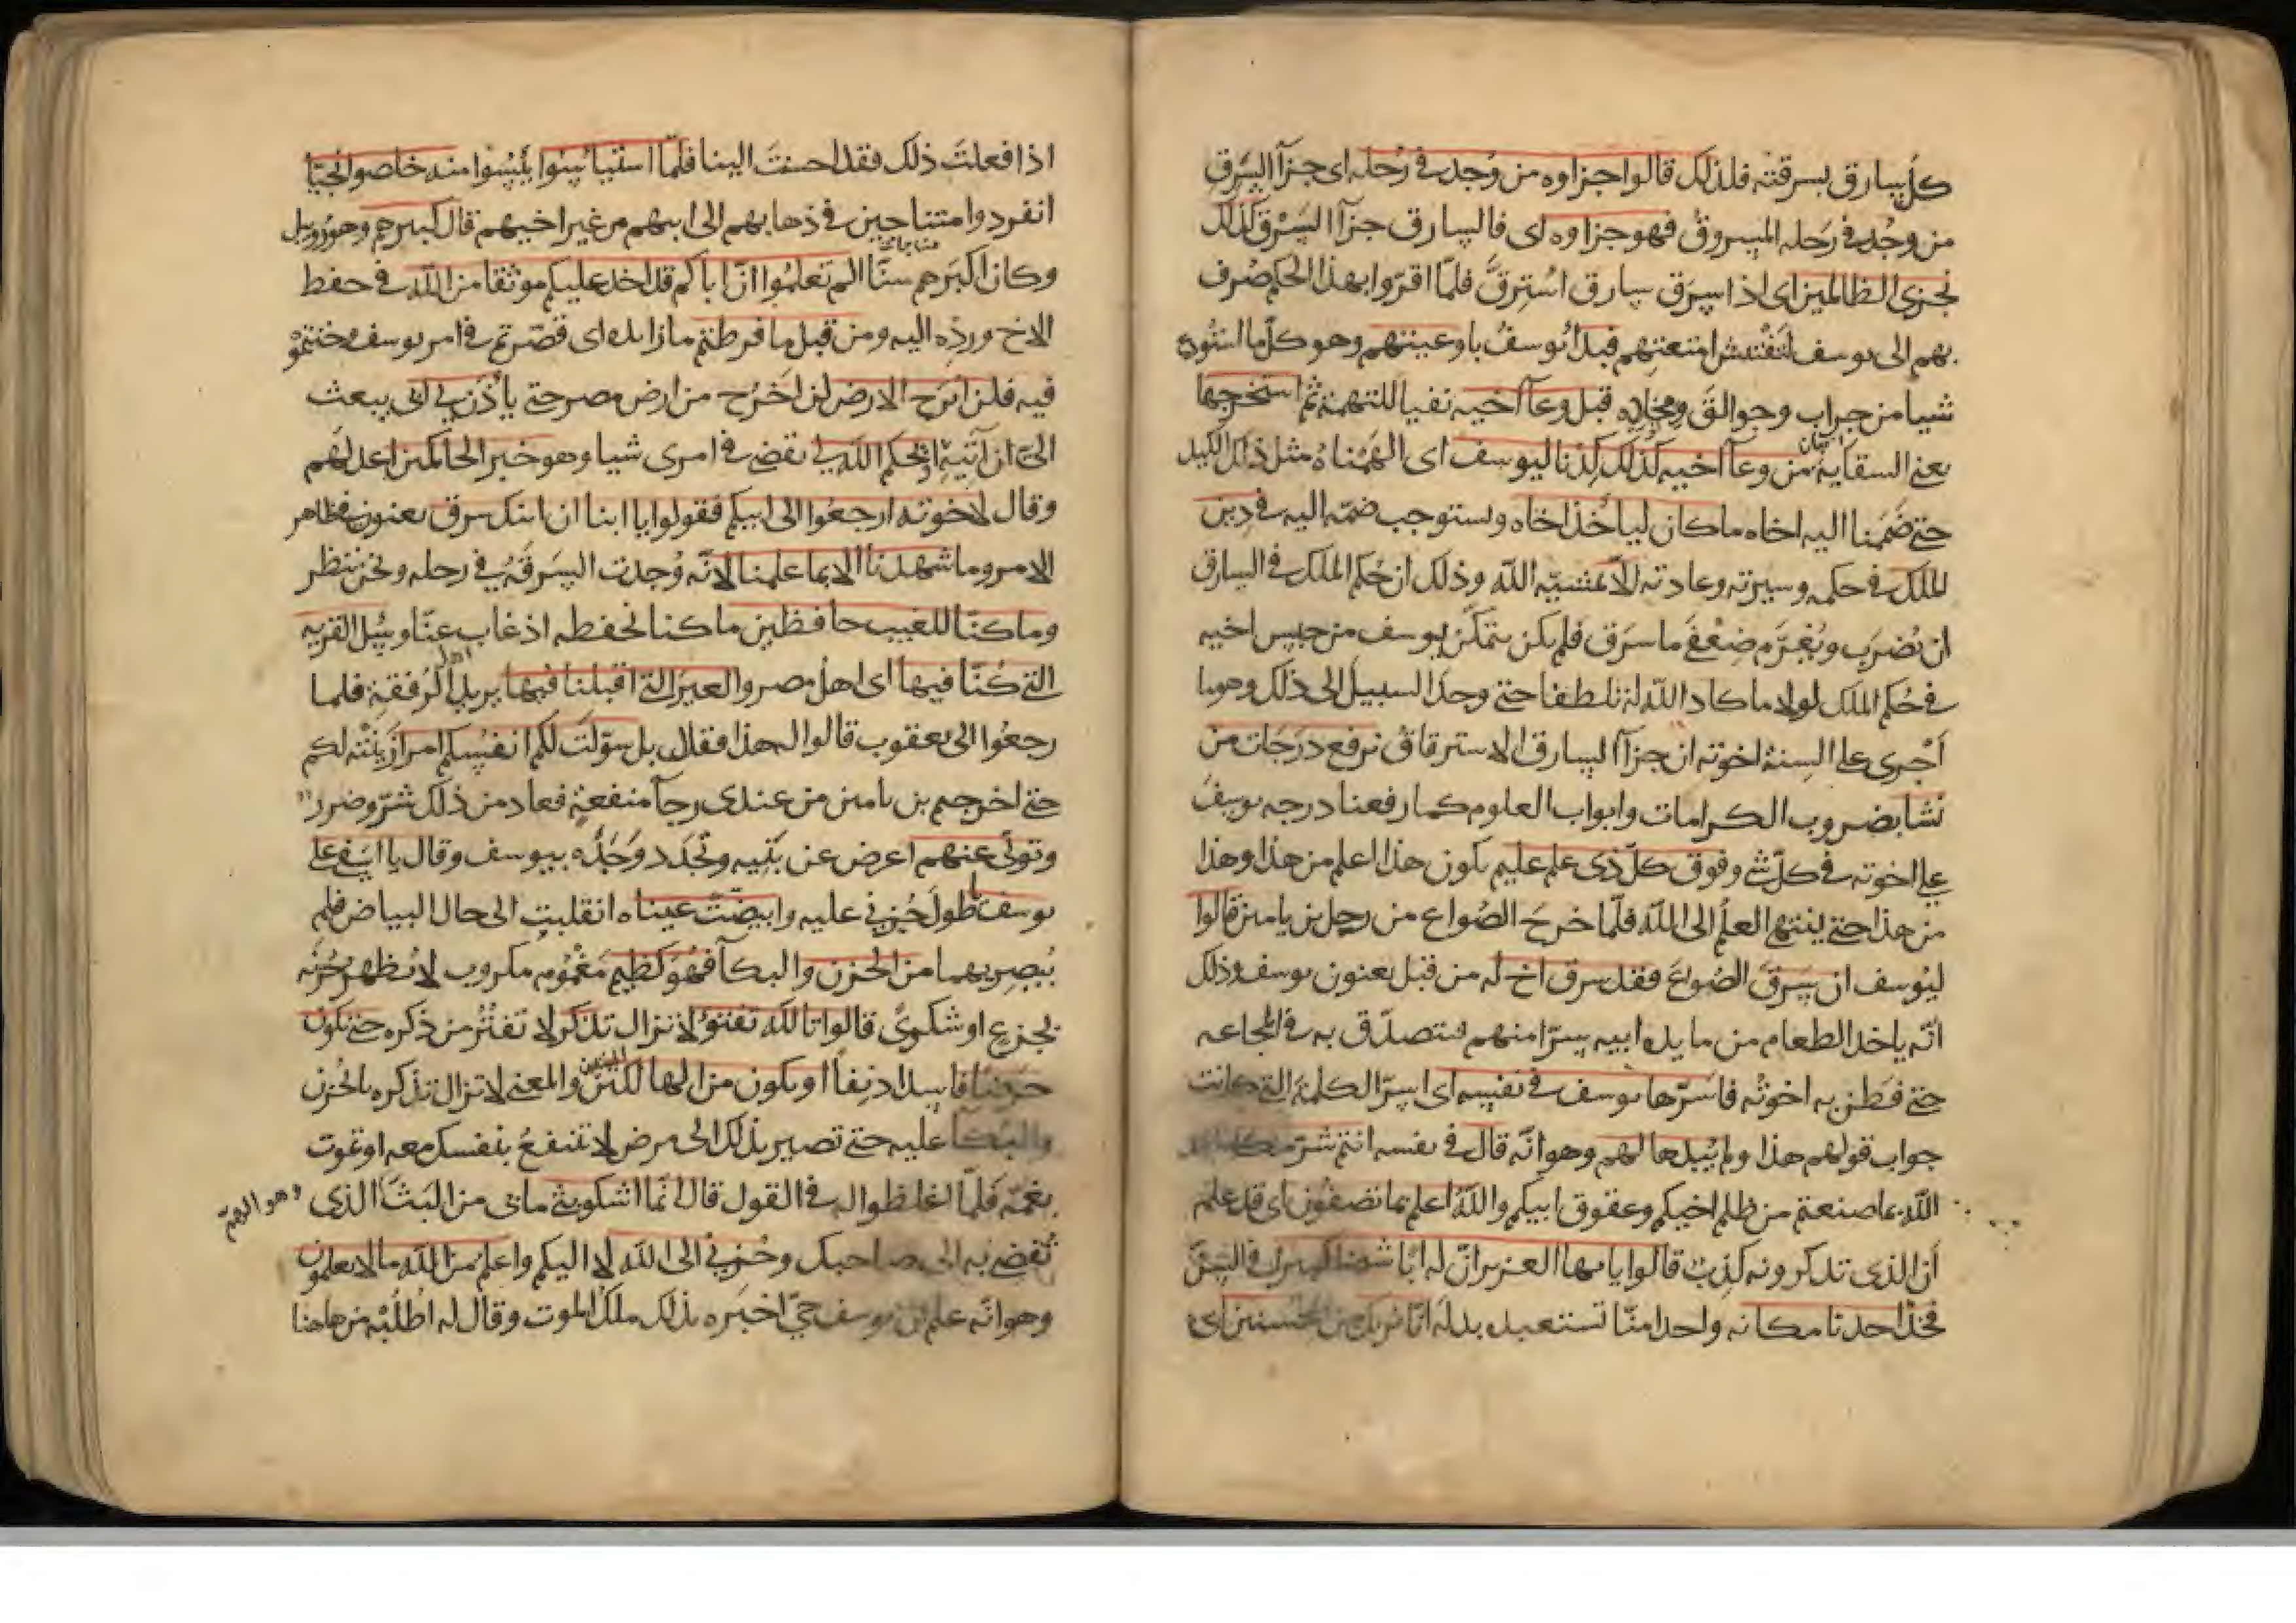 كل سارق بسرقته فلذلك قالوا جزاوه من وُجد في رَحله اى جزآ السَّرق
من وجُد في رَحله المسروقُ فهو جزاوه اى فالسارق جزآ السَّرْق كذلك
نجزى الظالمين اى اذا سرق سارق استُرِقَّ فلمّا اقرّوا بهذا الحكم صُرف
بهم الى يوسف لتفتيش امتعتهم فبدأ يُوسفُ باوعيتهم وهو كلّ ما استُودع
شيا من جراب وجوالقَ ومخلاه قبل وعآ اخيه نفيا للتهمة ثم استخرجها
يعنى السقاية من وعآ اخيه كذلك كِدْنا ليوسف اى الهَمْناهُ مثل ذلك الكيد
حتى ضَمَمنا اليه اخاه ما كان لياخُذ اخاه ويستوجب ضمّه اليه في دين
الملك في حكمه وسيرته وعادته الا بمشيّه الله وذلك ان حُكم الملك في السارق
ان يُضرَب ويُغرَّم ضِعْفَى ما سرَق فلم يكن يتمكّن يوسف من حبس اخيه
في حُكم الملك لولا ما كاد الله له تلطفا حتى وجد السبيل الى ذلك وهو ما
اَجْرى على السِنة اخوته ان جزآ السارق الاسترقاقُ نرفع دَرَجَات من
نشا بضروب الكرامات وابواب العلوم كما رفعنا درجه يوسف
على اخوته في كلّ شي وفوق كلّ ذى علم عليم يكون هذا اعلم من هذا وهذا
من هذا حتى ينتهى العلم الى الله فلمّا خرجَ الصُواع من رحل بن يامين قالوا
ليُوسف ان يسرق الصُواعَ فقد سرق اخ له من قبل يعنون يوسف وذلك
انّه ياخذ الطعام من مايده ابيه سِرّا منهم فيتصدّق به في المجاعه
حتى فَطَن به اخوتُه فاسرّها يوسف في نفسه اى اسرّ الكلمة التى كانت
جواب قولهم هذا ولم يُبدها لهم وهو انّه قال في نفسه انتم شرّ مكانا عند
الله بما صنعتم من ظلم اخيكم وعقوق ابيكم والله اعلم بما تصفون اى قد علم
اَن الذى تذكرونه كذِب قالوا يا ايها العزيز انّ له ابًا شيخا كبيرا في السّنّ
فخذ احدنا مكانه واحدا منّا تستعبده بدلَه انّا نريك من المحسنين اى
اذا فعلتَ ذلك فقد احسنتَ الينا فلمّا استيا‌ٔسوا يَئِسُوا منه خلصوا نجيّا
انفردوا متناجين في ذهابهم الى ابيهم من غير اخيهم قال كبيرهم وهو رُوبيل
وكان اكبَرهم سنًّا الم تعلمُوا انّ اباكم قد اخذ عليكم موثقا من الله في حفظ
الاخ وردّه اليه ومن قبل ما فرطتم ما زايده اى قصّرتم في امر يوسف وخنتموْ
فيه فلن ابرح الارض لن اَخرُج من ارض مصر حتى يأذَن لي ابى يبعث
الىّ ان آتيَهُ او يحكم الله لي يقضى في امرى شيا وهو خير الحاكمين اعدلهم
وقال لاخوته ارجعُوا الى ابيكم فقولوا يا ابانا ان ابنك سرق يعنون في ظاهر
الامر وما شهدنا الا بما علمنا لانّه وُجدت السَرقةُ في رحله ونحن ننظر
وما كنّا للغيب حافظين ما كنا نحفظه اذ غاب عنّا وسَل القريه
التى كُنّا فيها اى اهل مصر والعير التى اقبلنا فيها يريد اهل الرُفقة فلما
رجعُوا الى يعقوب قالوا له هذا فقال بل سوّلت لكم انفسكم امرا زيّنَتْه لكم
حتى اخرجتم بن يامين من عندى رجآ منفعةٍ فعاد من ذلك شرّ وضرر
وتولّى عنهم اعرض عن بَنِيه وتجدّد وَجْدُه بيوسف وقال يا اسفى على
يوسف يا طولَ حُزني عليه وابيضّت عيناه انقلبت الى حال البياض فلم
يُبصِر بهما من الحُزن والبكآ فهو كظيم مَغْمُوم مكروب لا يُظهر حُزنَه
بجزع او شكوى قالوا تالله تفتؤ لا تزال تذكر لا تفتُر من ذكره حتى تكون
حرضا فاسدا دنِفًا او يكون من الهالكين والمعنى لا تزال تذكره بالحُزن
والبُكآ عليه حتى تصير بذلك الى مرض لا تنتفعُ بنفسك معه او تموت
بغمّه فلمّا اغلظوا له في القول قال انّما اشكو بثّى ما بى من البَثّ الذى وهو الهمّ
تُفضى به الى صاحبك وحُزني الى الله لا اليكم واعلم من الله ما لا تعلمون
وهو انّه علم ان يوسف حيّ اخبَره بذلك ملكُ الموت وقال له اطلُبْه من هاهنا